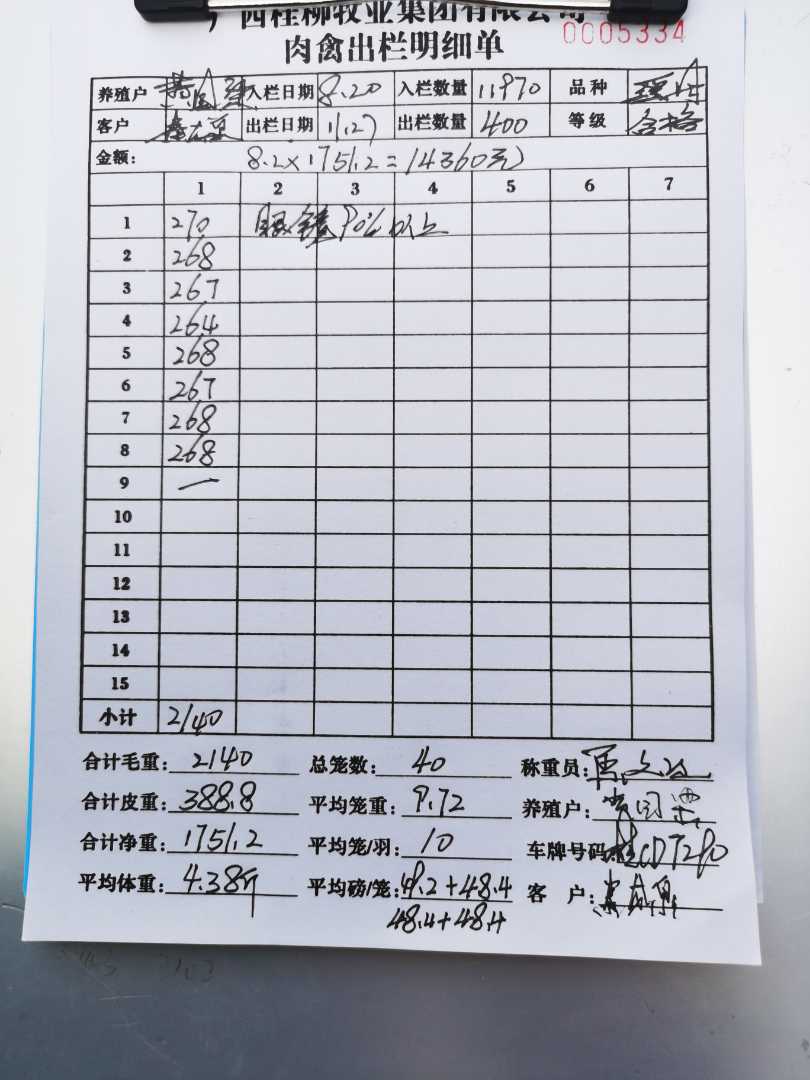 广西桂柳牧业集团有限公司
肉禽出栏明细单 0005334
养殖户 入栏日期 8.20 入栏数量 11970 品种
客户 出栏日期 11.27 出栏数量 400 等级 合格
金额: 8.2×1751.2=14360元
1 2 3 4 5 6 7
1 270 眼镜90%以上
2 268
3 267
4 264
5 268
6 267
7 268
8 268
9 一
10
11
12
13
14
15
小计 2140
合计毛重: 2140 总笼数: 40 称重员:
合计皮重: 388.8 平均笼重: 9.72 养殖户:
合计净重: 1751.2 平均笼/羽: 10 车牌号码:
平均体重: 4.38斤 平均磅/笼: 48.2+48.4 客 户:
48.4+48.4